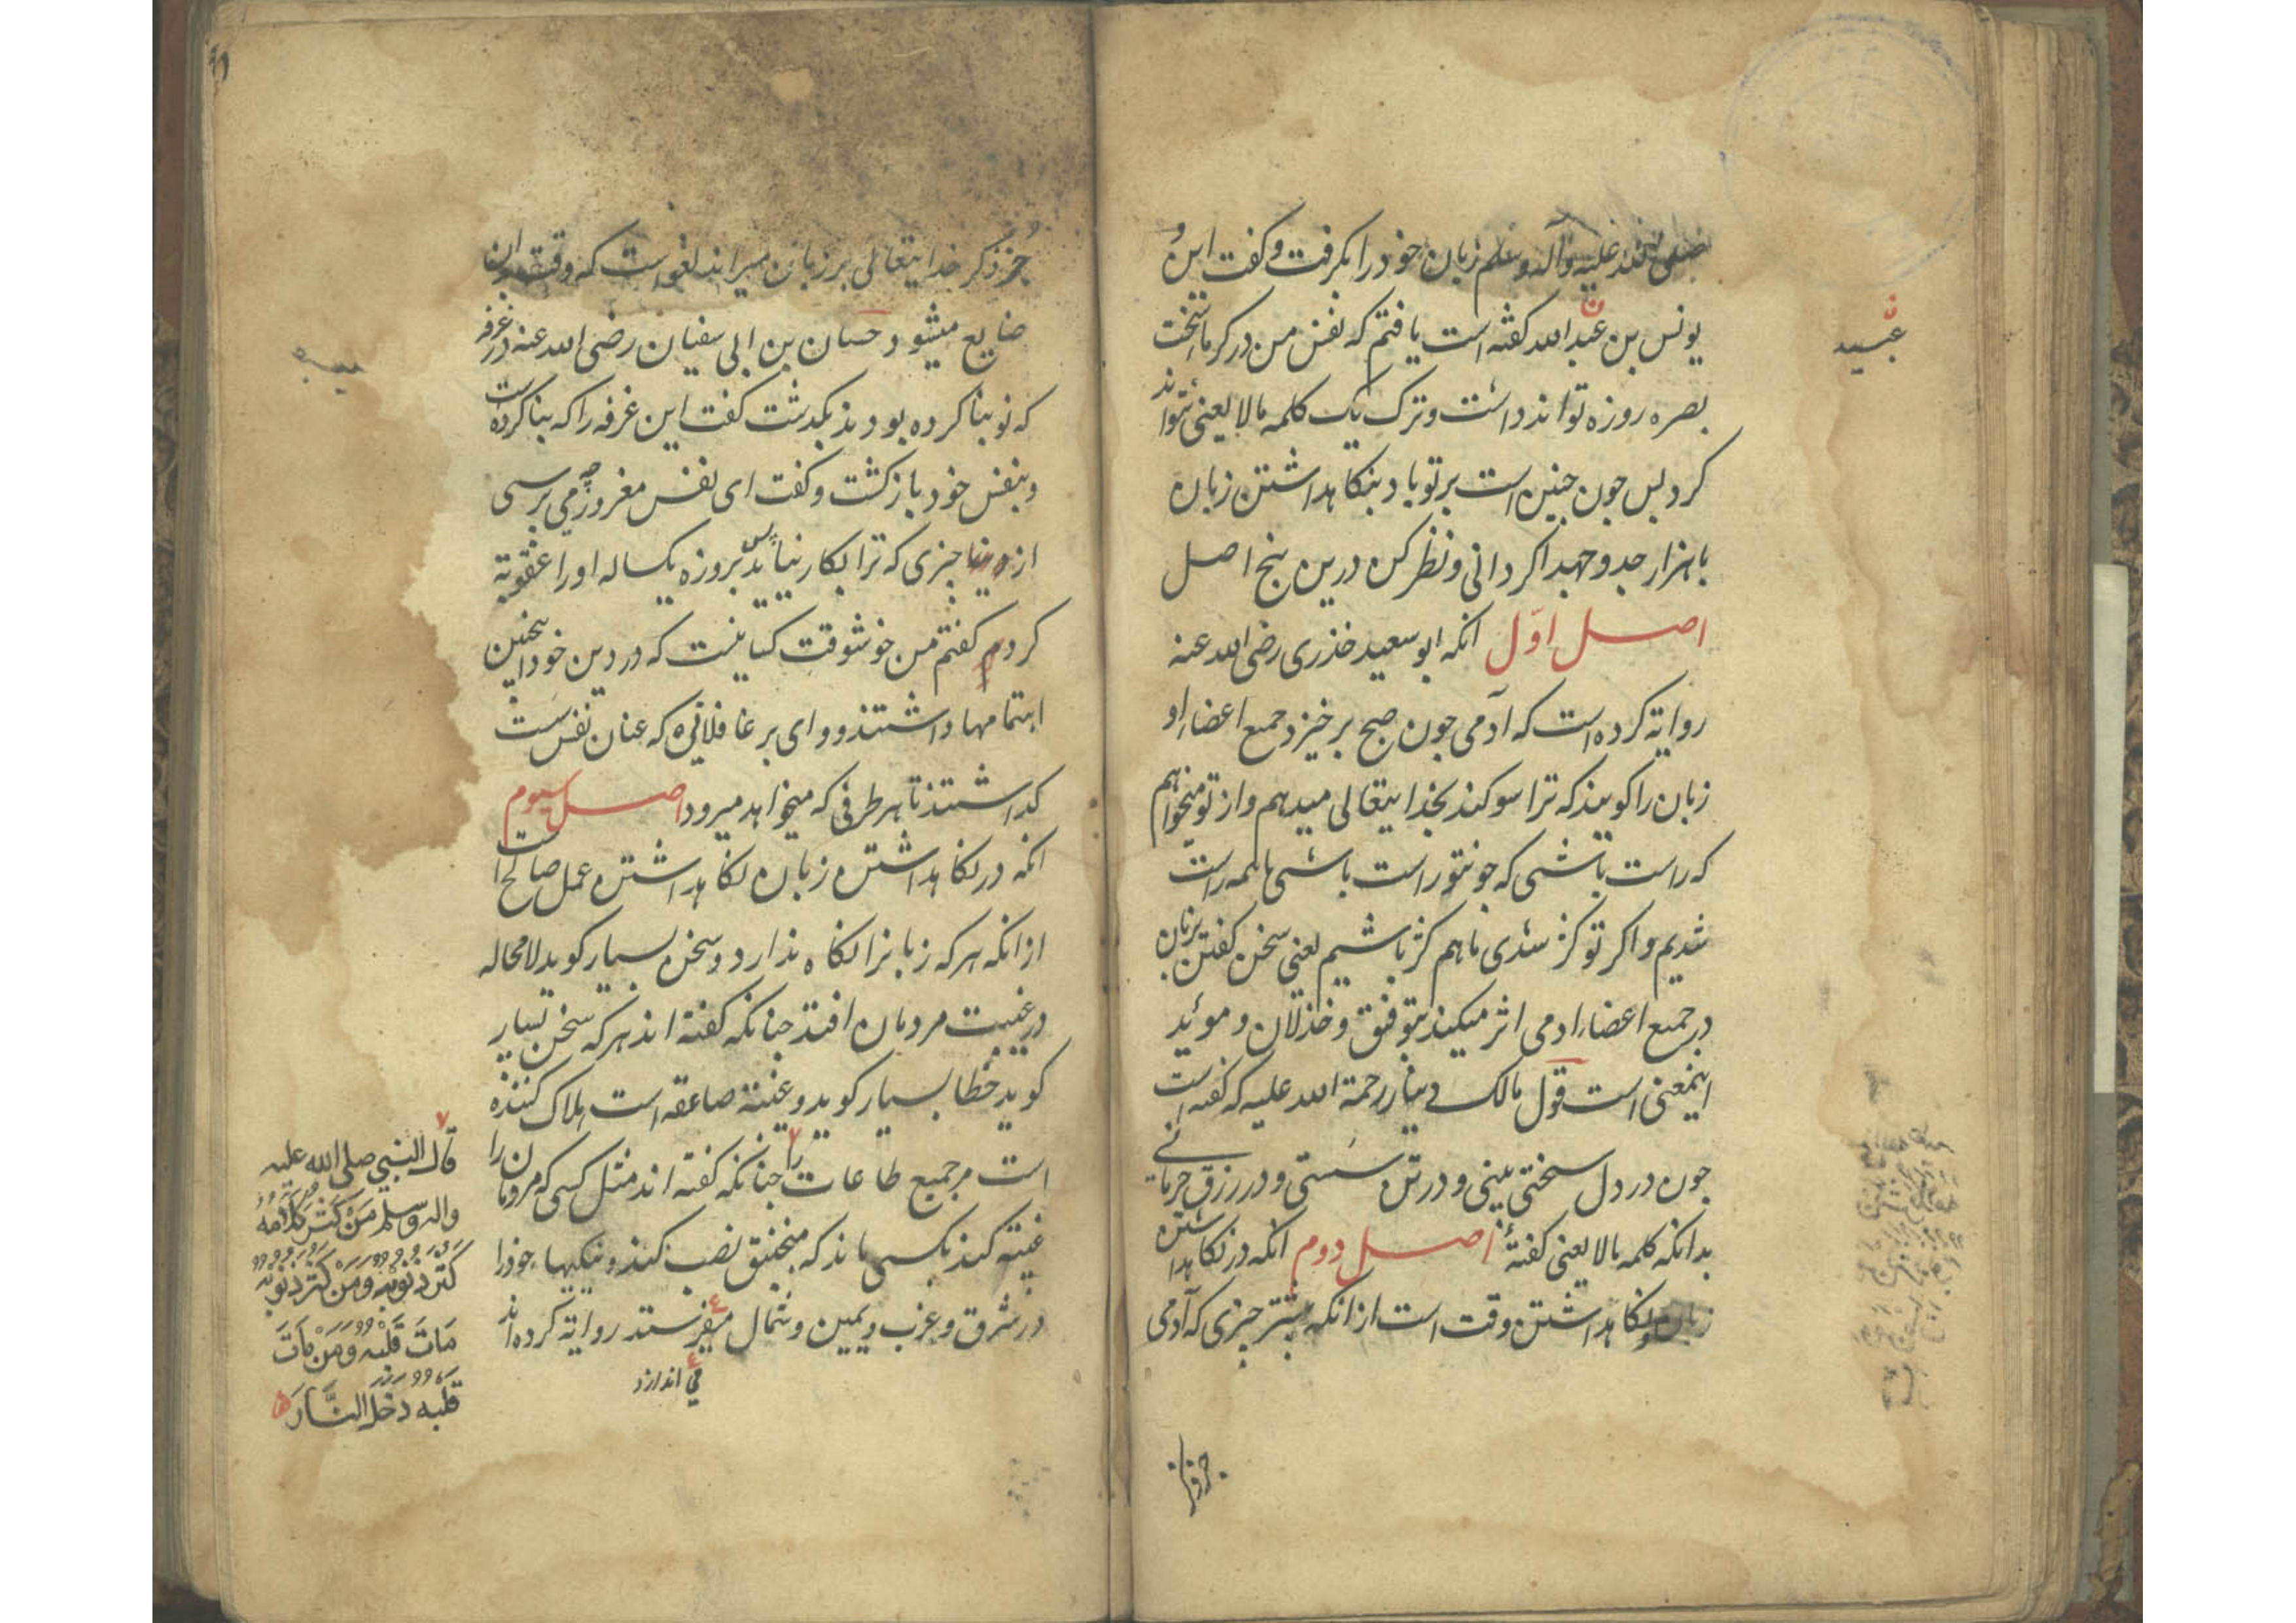 صلی الله علیه وآله وسلم زبان خود را بکرفت و کفت این و
یونس بن عبدالله کفته است یافتم که نفس من در کرما سخت
بصره روزه تواند داشت و ترک یک کلمه مالا یعنی نتواند
کرد پس جون جنین است بر تو باد بنکاهداشتن زبان
با هزار جد و جهد اکر دانی و نظر کن درین پنج اصل
اصل اوّل انکه ابو سعید خذری رضی الله عنه
روایة کرده است که آدمی جون صبح برخیزد جمیع اعضاء او
زبان را کویند که ترا سوکند بخدایتعالی میدهم و از تو میخواهم
که راست باشی که جون تو راست باشی ما همه راست
شدیم و اکر تو کژ شدی ما هم کژ باشیم یعنی سخن کفتن بزبان
در جمیع اعضاء ادمی اثر میکند بتوفیق و خذلان و موئید
اینمعنی است قول مالک دینار رحمة الله علیه که کفته است
جون در دل سختی بینی و در تن سستی و در رزق حرمانی
بدانکه کلمه مالا یعنی کفتهٔ اصل دوم انکه در نکاهداشتن
زبان نکاهداشتن وقت است از انکه بیشتر چیزی که آدمی
عبید
جز ذکر
جُز ذکر خدایتعالی بر زبان میراند لغو است که وقت بدان
ضایع میشود حسان بن ابی سفیان رضی الله عنه در غرفه
که نو بنا کرده بودند بکذشت کفت این غرفه را که بنا کرده است
و بنفس خود باز کشت و کفت ای نفس مغرور چه می پرسی
از چیزی که ترا بکار نیاید پس بروزه یکساله او را عقوبة
کردم کفتم من خوشوقت کسانیست که در دین خود اینچنین
اهتمامها داشتند و وای بر غافلانی که عنان نفس سست
کذاشتند تا هر طرفی که میخواهد میرود اصل سیوم
انکه در نکاهداشتن زبان نکاهداشتن عمل صالح است
از انکه هر که زبانرا نکاه ندارد و سخن بسیار کوید لا محاله
در غیبت مردمان افتد جنانکه کفته اند هر که سخن بسیار
کوید خطا بسیار کوید و غیبة صاعقه است هلاک کننده
است مر جمیع طاعات را جنانکه کفته اند مثل کسی که مردمان را
غیبة کند بکسی ماند که منجنیق نصب کند و نیکیهاء خود را
در شرق و غرب و یمین و شمال میفرستد روایة کرده اند
می اندازد
قال النبی صلی الله علیه
واله وسلم مَنْ کَثُرَ کَلَامُهُ
کَثُرَ ذُنُوبُهُ وَمَنْ کَثُرَ ذُنُوبُهُ
مَاتَ قَلْبُهُ وَمَنْ مَاتَ
قَلْبُهُ دَخَلَ النَّارَ